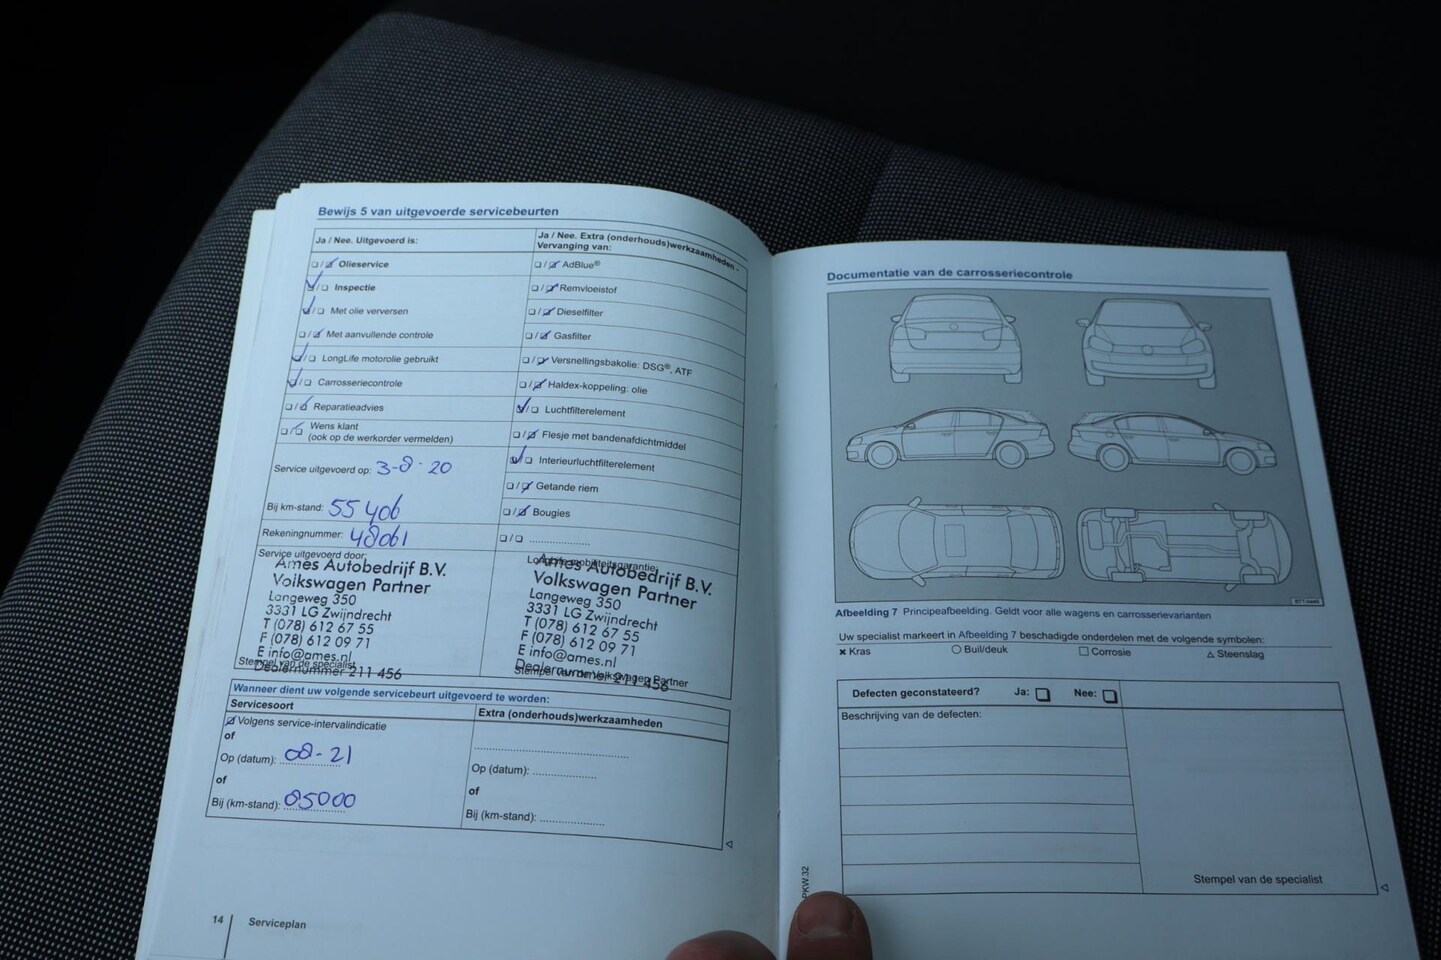 Bewijs 5 van uitgevoerde servicebeurten
Ja / Nee. Uitgevoerd is:
Olieservice
Inspectie
Met olie verversen
Met aanvullende controle
LongLife motorolie gebruikt
Carrosseriecontrole
Reparatieadvies
Wens klant
(ook op de werkorder vermelden)
Service uitgevoerd op: 3-8-20
Bij km-stand: 55406
Rekeningnummer: 48061
Service uitgevoerd door:
Ames Autobedrijf B.V.
Volkswagen Partner
Langeweg 350
3331 LG Zwijndrecht
T (078) 612 67 55
F (078) 612 09 71
E info@ames.nl
Dealernummer 211 456
Stempel van de specialist
Ja / Nee. Extra (onderhouds)werkzaamheden -
Vervanging van:
AdBlue®
Remvloeistof
Dieselfilter
Gasfilter
Versnellingsbakolie: DSG®, ATF
Haldex-koppeling: olie
Luchtfilterelement
Flesje met bandenafdichtmiddel
Interieurluchtfilterelement
Getande riem
Bougies
LongLife mobiliteitsgarantie
Ames Autobedrijf B.V.
Volkswagen Partner
Langeweg 350
3331 LG Zwijndrecht
T (078) 612 67 55
F (078) 612 09 71
E info@ames.nl
Dealernummer 211 456
Stempel van de Volkswagen Partner
Wanneer dient uw volgende servicebeurt uitgevoerd te worden:
Servicesoort
Volgens service-intervalindicatie
of
Op (datum): 08-21
of
Bij (km-stand): 85000
Extra (onderhouds)werkzaamheden
Op (datum):
of
Bij (km-stand):
14
Serviceplan
Documentatie van de carrosseriecontrole
Afbeelding 7 Principeafbeelding. Geldt voor alle wagens en carrosserievarianten
Uw specialist markeert in Afbeelding 7 beschadigde onderdelen met de volgende symbolen:
Kras
Buil/deuk
Corrosie
Steenslag
Defecten geconstateerd? Ja: Nee:
Beschrijving van de defecten:
Stempel van de specialist
PKW.32